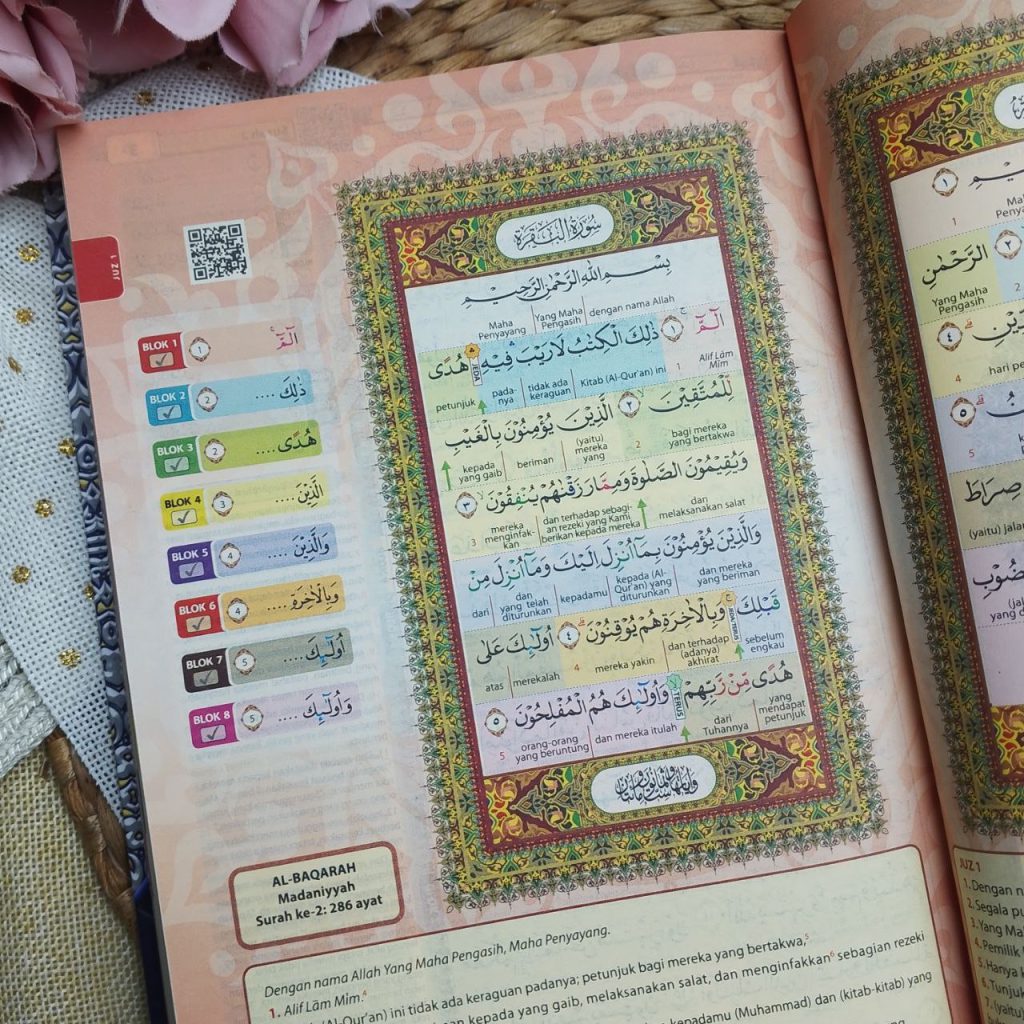 JUZ 1
BLOK 1 ١ الٓمّٓ ۚ
BLOK 2 2 ذٰلِكَ ....
BLOK 3 2 هُدًى ....
BLOK 4 3 الَّذِيْنَ ....
BLOK 5 4 وَالَّذِيْنَ ....
BLOK 6 4 وَبِالْاٰخِرَةِ ....
BLOK 7 5 اُولٰۤىِٕكَ ....
BLOK 8 5 وَاُولٰۤىِٕكَ ....
سُوْرَةُ الْبَقَرَةِ
بِسْمِ اللّٰهِ الرَّحْمٰنِ الرَّحِيْمِ
dengan nama Allah Yang Maha Pengasih Maha Penyayang
الٓمّٓ ۚ ١ ذٰلِكَ الْكِتٰبُ لَا رَيْبَ ۛ فِيْهِ ۛ هُدًى
1 Alif Lām Mīm Kitab (Al-Qur'an) ini tidak ada keraguan pada-nya JEDA petunjuk
لِّلْمُتَّقِيْنَ ۙ ٢ الَّذِيْنَ يُؤْمِنُوْنَ بِالْغَيْبِ
bagi mereka yang bertakwa 2 (yaitu) mereka yang beriman kepada yang gaib
وَيُقِيْمُوْنَ الصَّلٰوةَ وَمِمَّا رَزَقْنٰهُمْ يُنْفِقُوْنَ ۙ ٣
dan melaksanakan salat dan terhadap sebagi-an rezeki yang Kami berikan kepada mereka mereka menginfak-kan 3
وَالَّذِيْنَ يُؤْمِنُوْنَ بِمَآ اُنْزِلَ اِلَيْكَ وَمَآ اُنْزِلَ مِنْ
dan mereka yang beriman kepada (Al-Qur'an) yang diturunkan kepadamu dan yang telah diturunkan dari
قَبْلِكَ ۚ وَبِالْاٰخِرَةِ هُمْ يُوْقِنُوْنَ ۗ ٤ اُولٰۤىِٕكَ عَلٰى
sebelum engkau dan terhadap (adanya) akhirat mereka yakin 4 merekalah atas
هُدًى مِّنْ رَّبِّهِمْ ۙ وَاُولٰۤىِٕكَ هُمُ الْمُفْلِحُوْنَ ٥
yang mendapat petunjuk dari Tuhannya TERUS dan mereka itulah orang-orang yang beruntung 5
AL-BAQARAH
Madaniyyah
Surah ke-2: 286 ayat
Dengan nama Allah Yang Maha Pengasih, Maha Penyayang.
1. Alif Lām Mīm.4
(Al-Qur'an) ini tidak ada keraguan padanya; petunjuk bagi mereka yang bertakwa,5
kepada yang gaib, melaksanakan salat, dan menginfakkan6 sebagian rezeki
kepadamu (Muhammad) dan (kitab-kitab) yang
١
1
Maha
الرَّحْمٰنِ ٢
Yang Maha Pengasih 2
٤
4 hari
٥
5
صِرَاطَ
(yaitu) jalan
JUZ 1
1. Dengan
2. Segala
3. Yang
4. Pemilik
5. Hanya
6.
7. (yaitu)